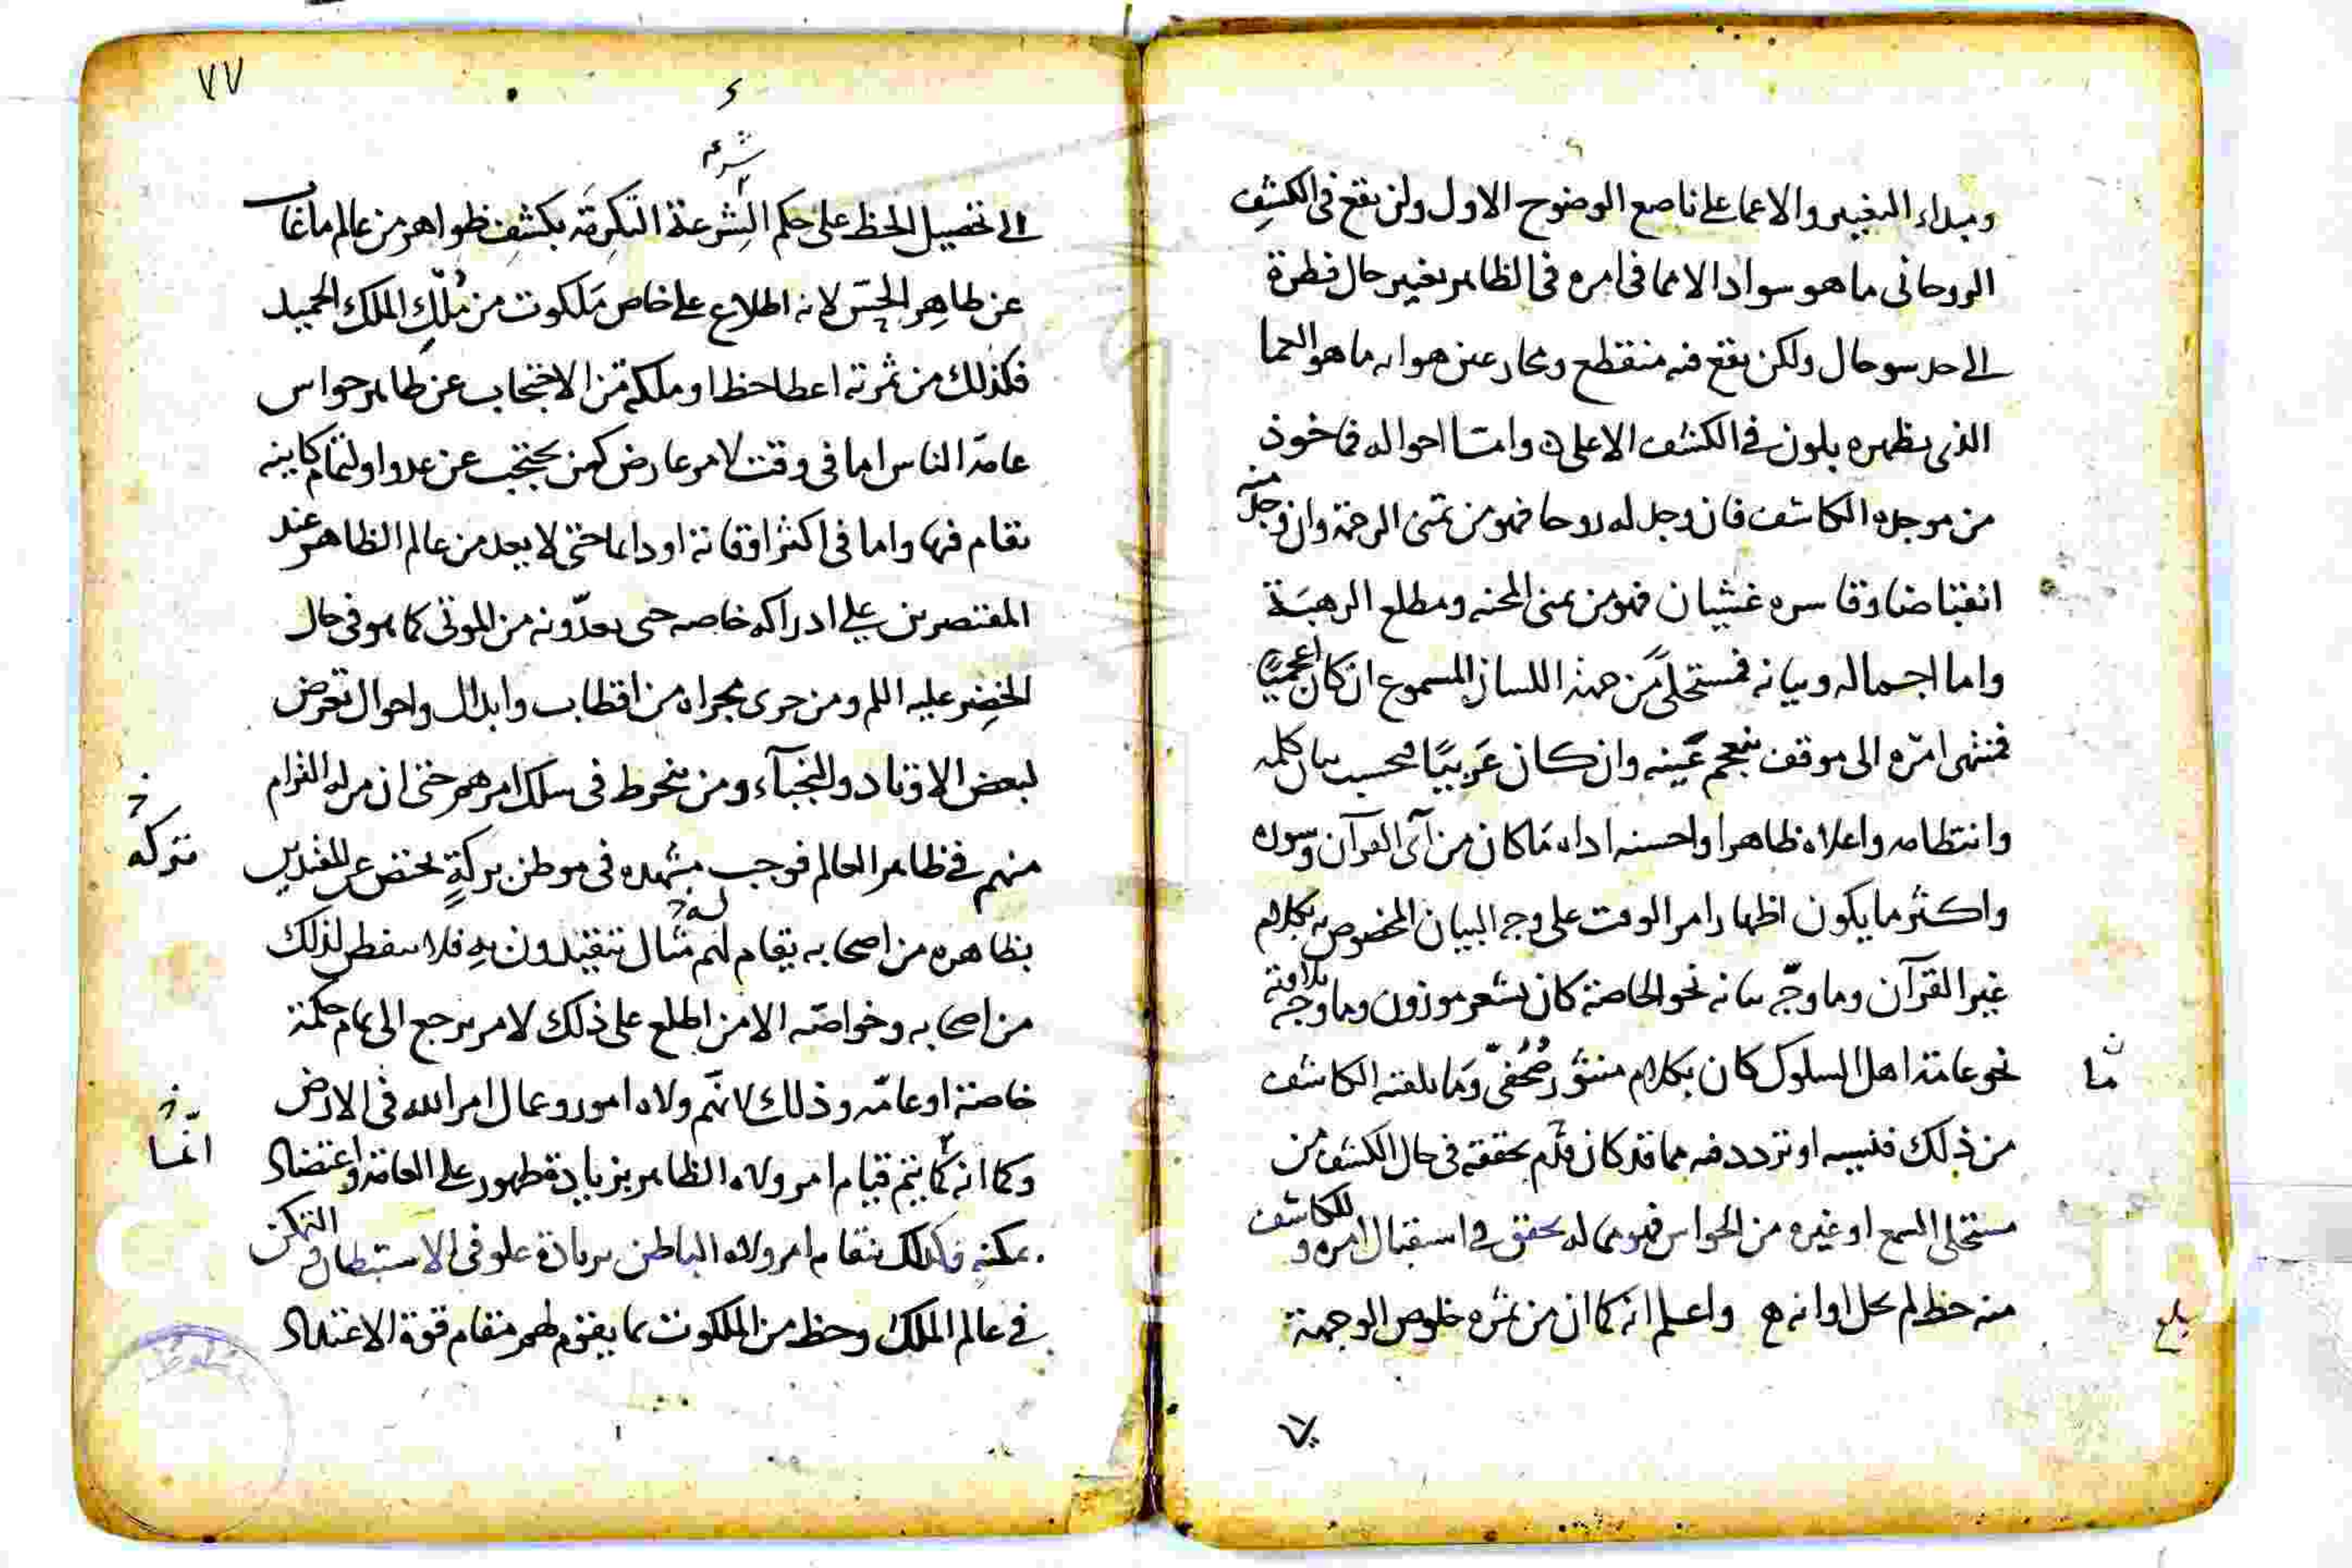 ومبداء التغيير والاعما على ناصع الوضوح الاول ولن يقع في الكشف
الروحانى ما هو سواد الاعما في امره في الظاهر بغير حال فطرة
الى حد سو حال ولكن يقع فيه منقطع ومحار عن هوايه ما هو الحما
الذى يظهره بلون في الكشف الاعلى ه وامّا احواله فماخوذ
من موجده الكاشف فان وجد له روحا فهو من تمنى الرحمة وان وجد منه
انقباضا وقاسره غشيان فهو من تمنى المحنه ومطلع الرهبَة
واما اجماله وبيانه فمستحلى من جهة اللسان المسموع ان كان اعجميًا
فمنتهى امره الى موقف ينعجم عينه وان كان عَربيًا فحسب بيان كلمه
وانتظامه واعلاه ظاهرا واحسنه اداه مَا كان من آى القرآن وسوره
واكثر ما يكون اظهار امر الوقت على وجه البيان المخصوص به بكلام
غير القرآن وما وجّه بيانه نحو الخاصة كان بشعر موزون وما وجه تلاوته
نحو عامة اهل السلوك كان بكلام منثور صُحُفىّ وَما يلقته الكاشف
ما
من ذلك فنسيه او تردد فيه مما قد كان فلم يحققه في حال الكشف من
مستحلى السمع او غيره من الحواس فهو مما له يحقق في استقبال امره وللكاشف
منه حظ لم يحل اوانه ه واعلم انه كما ان من ثمره خلوص الوجهة
بلغ
٧٧
شرعه
الى تحصيل الحظ على حكم الشرعة البَكريّة بكشف ظواهر من عالم ما غاب
عن ظاهِر الحِسّ لانه اطلاع على خاص مَلكوت من مُلكِ الملك الحميد
فكذلك من ثمرته اعطا حظ او ملكة من الاحتجاب عن ظاهر حواس
عامّة الناس اما فى وقت لامر عارض كمن يحتجب عن عدو او لتمام كاينه
يقام فيها واما فى اكثر اوقاته او دايما حتى لا يعد من عالم الظاهر عند
المقتصرين على ادراكه خاصه حتى يعدّونه من الموتى كما هو فى حال
الخضِر عليه السلم ومن جرى مجراه من اقطاب وابدال واحوال تعرض
لبعض الاوتاد والنجبآء ومن ينخرط فى سلك امرهم حتى ان من له القوام
منهم فى ظاهر العالم فوجب مشهده فى موطن بركةٍ يختص عن المقتدين
متركه
بظاهره من اصحابه يقام لهم مثال يتقيّدون بهِ فلا يفطن لذلك
من اصحابه وخواصّه الا من اطلع على ذلك لامر يرجع الى تمام حكمة
خاصّة او عامّه وذلك لانّهم ولاه امور وعمال امر الله فى الارض
وكما انه كما يتم قيام امر ولاه الظاهر بزيادة ظهور على العامّة واعتضاد
انّما
بمكنه فكذلك يقام امر ولاه الباطن بزيادة علو فى الاستبطان والتمكن
فى عالم الملك وحظ من الملكوت بما يقوم لهم مقام قوة الاعتداد